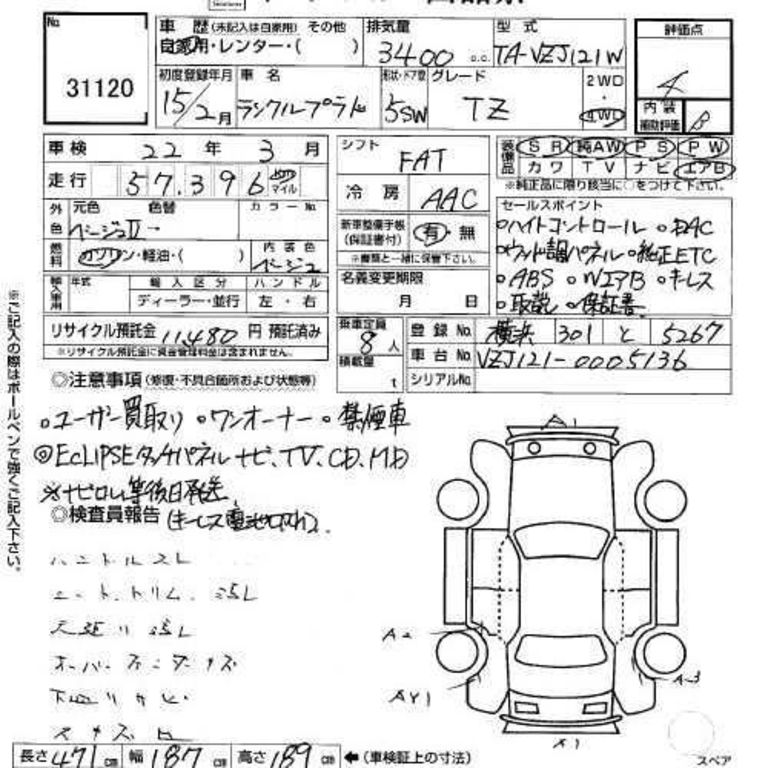 No.
31120
車歴(未記入は自家用) その他
自家用・レンター・( )
排気量
3400 c.c.
型式
TA-VZJ121W
評価点
4
初度登録年月
15/2月
車名
ランクルプラド
形状・ドア数
5SW
グレード
TZ
2WD
・
4WD
内装
補助評価 B
車検 22年 3月
走行 57,396 km マイル
シフト
FAT
冷房 AAC
装備品
SR 純AW PS PW
カワ TV ナビ エアB
※純正品に限り該当に○をつけて下さい。
外色
元色 色替
ベージュII→
カラーNo.
燃料
ガソリン・軽油・( )
内装色
ベージュ
新車整備手帳
(保証書付)
有・無
※書類と一緒に保管下さい。
セールスポイント
○ハイトコントロール ○DAC
○ウッド調パネル ○純正ETC
○ABS ○WエアB ○キーレス
○取説 ○保証書
輸入車用
年式
輸入区分
ハンドル
ディーラー・並行
左・右
名義変更期限
月 日
リサイクル預託金 11,480 円 預託済み
※リサイクル預託金に資金管理料金は含まれません。
乗車定員
8人
積載量
t
登録No. 横浜 301 と 5267
車台No. VZJ121-0005136
シリアルNo.
◎注意事項(修復・不具合箇所および状態等)
○ユーザー買取り ○ワンオーナー ○禁煙車
◎ECLIPSEタッチパネルナビ、TV、CD、MD
※ナビロム等後日発送
◎検査員報告 (キーレス電池切れ)
ハンドルスレ
天張り
A2
AY1
A-3
A1
A1
スペア
長さ 471 cm 幅 187 cm 高さ 189 cm ←(車検証上の寸法)
※ご記入の際はボールペンで強くご記入下さい。